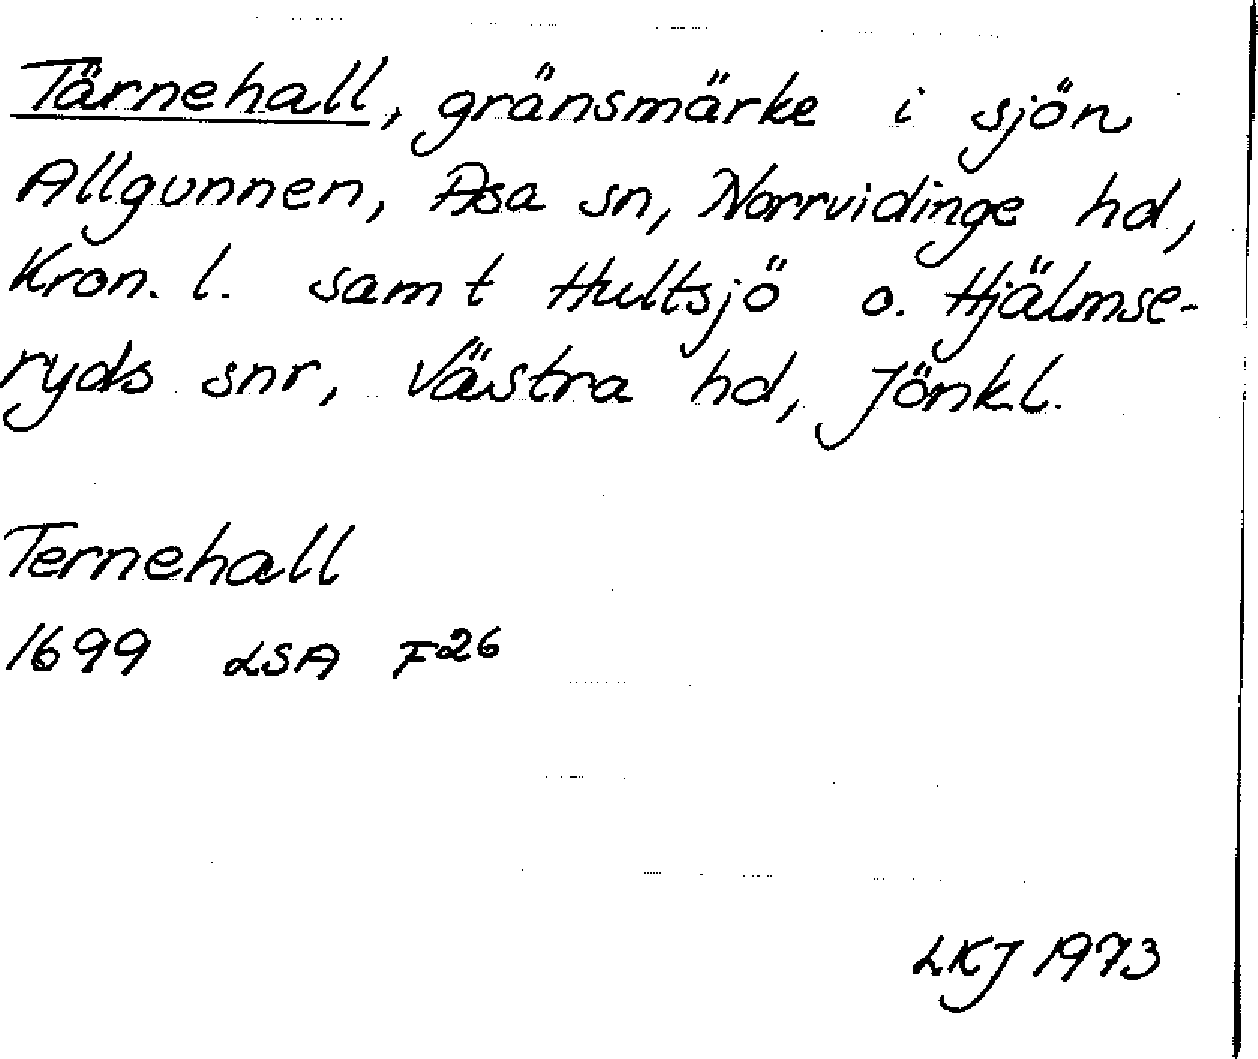 Tärnehall, gränsmärke i sjön
Allgunnen, Asa sn, Norrvidinge hd,
Kron. l. samt Hultsjö o. Hjälmse-
ryds snr, Västra hd, Jönk.l.
Ternehall
1699 LSA F26
LKJ 1973